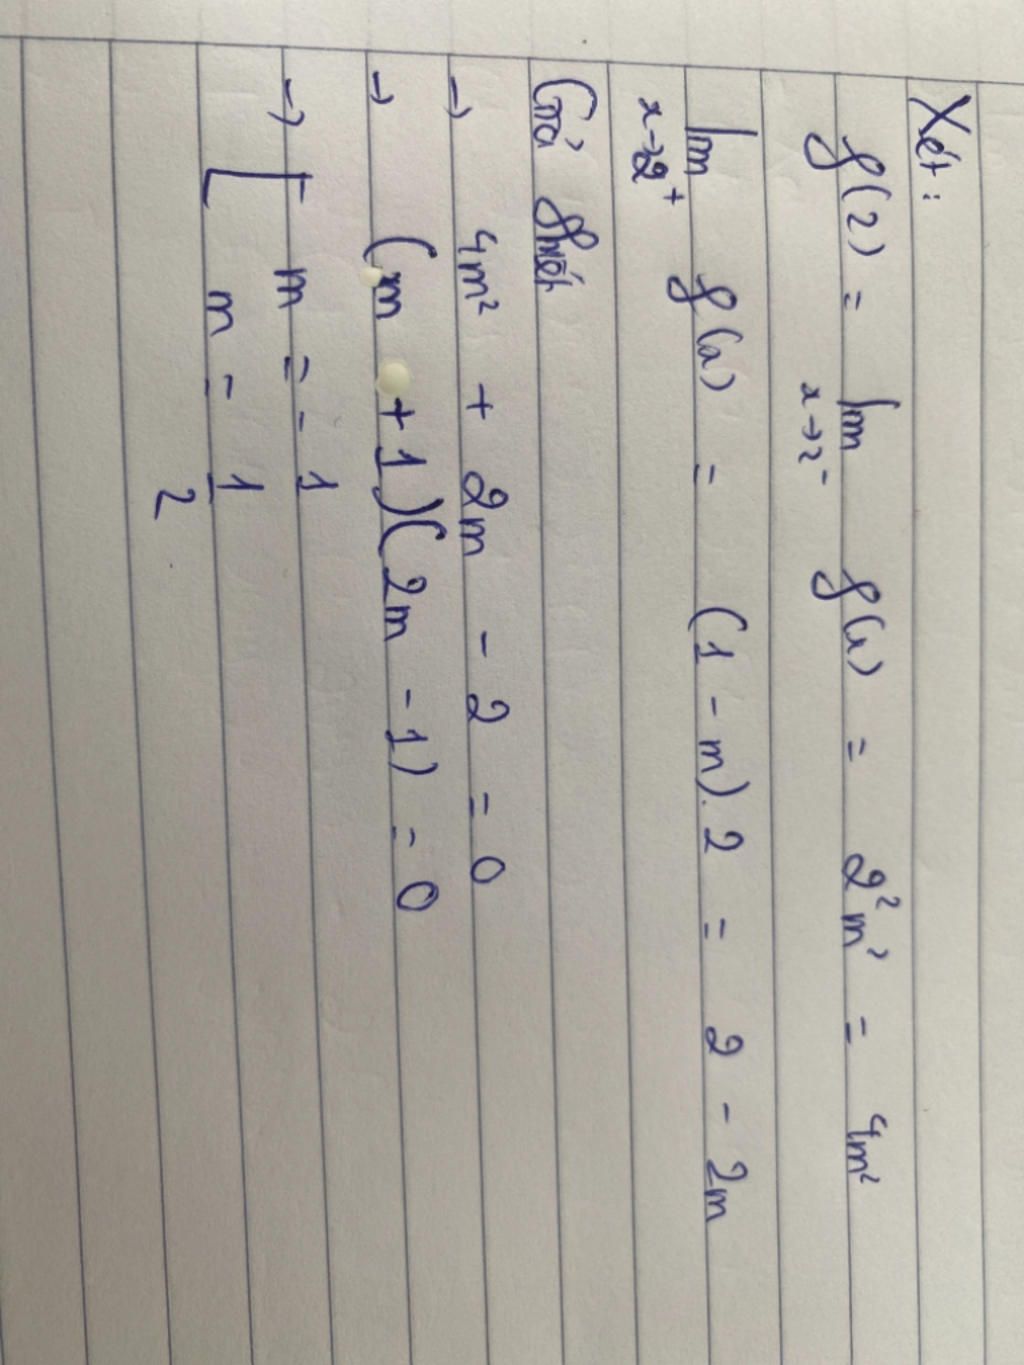 Xét:
f(2) = lim x→2⁻ f(x) = 2²m² = 4m²
lim x→2⁺ f(x) = (1 - m).2 = 2 - 2m
Giả thiết
→ 4m² + 2m - 2 = 0
→ (m + 1)(2m - 1) = 0
→ [ m = -1
m = 1/2